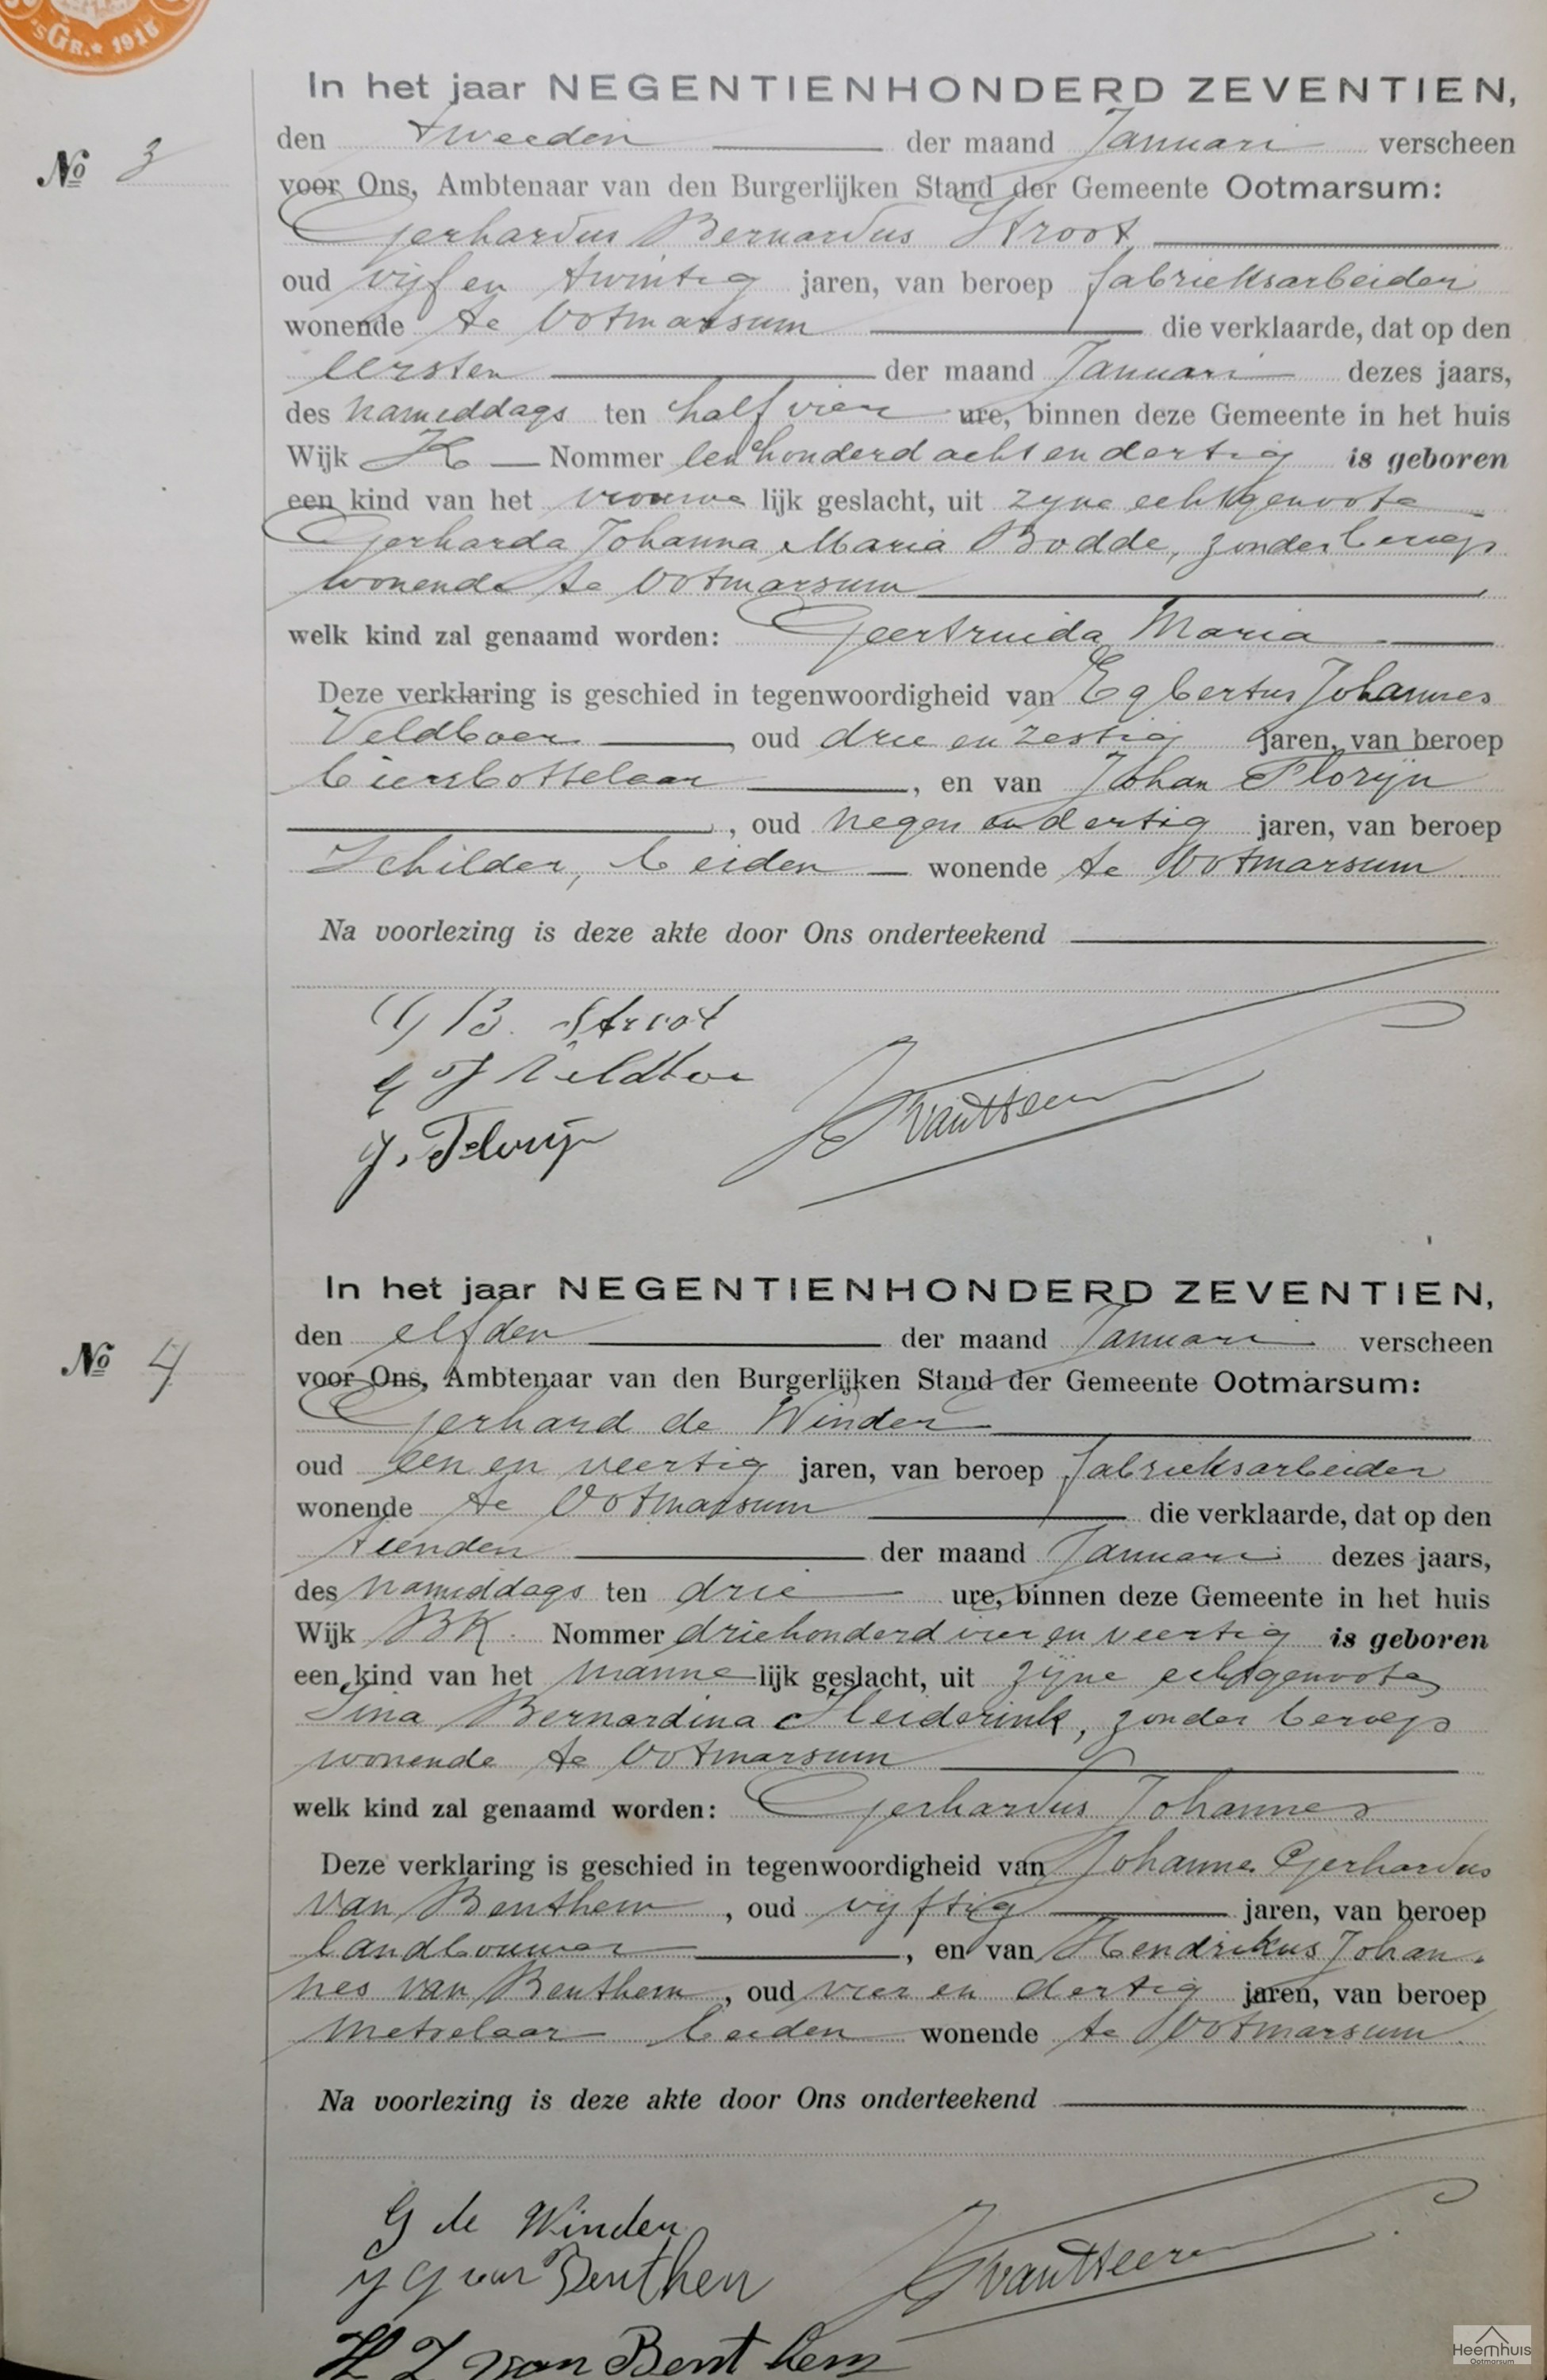 'sGR. * 1915
In het jaar NEGENTIENHONDERD ZEVENTIEN,
No 3
den tweeden der maand Januari verscheen
voor Ons, Ambtenaar van den Burgerlijken Stand der Gemeente Ootmarsum:
Gerhardus Bernardus Stroot,
oud vijf en twintig jaren, van beroep fabrieksarbeider
wonende te Ootmarsum die verklaarde, dat op den
eersten der maand Januari dezes jaars,
des namiddags ten half vier ure, binnen deze Gemeente in het huis
Wijk K Nommer eenhonderd acht en dertig is geboren
een kind van het vrouwe lijk geslacht, uit zyne echtgenoote
Gerharda Johanna Maria Bodde, zonder beroep
wonende te Ootmarsum
welk kind zal genaamd worden: Geertruida Maria
Deze verklaring is geschied in tegenwoordigheid van Egbertus Johannes
Veldboer, oud drie en zestig jaren, van beroep
bierbottelaar, en van Johan Florijn
, oud negen en dertig jaren, van beroep
Schilder, beiden wonende te Ootmarsum
Na voorlezing is deze akte door Ons onderteekend
G B. Stroot
J. Florijn
In het jaar NEGENTIENHONDERD ZEVENTIEN,
No 4
den elfden der maand Januari verscheen
voor Ons, Ambtenaar van den Burgerlijken Stand der Gemeente Ootmarsum:
Gerhard de Winder
oud een en veertig jaren, van beroep fabrieksarbeider
wonende te Ootmarsum die verklaarde, dat op den
tienden der maand Januari dezes jaars,
des namiddags ten drie ure, binnen deze Gemeente in het huis
Wijk BK. Nommer driehonderd vier en veertig is geboren
een kind van het manne lijk geslacht, uit zijne echtgenoote
Sina Bernardina Heiderink, zonder beroep
wonende te Ootmarsum
welk kind zal genaamd worden: Gerhardus Johannes
Deze verklaring is geschied in tegenwoordigheid van Johannes Gerhardus
van Benthem, oud vijftig jaren, van beroep
landbouwer, en van Hendrikus Johan-
nes van Benthem, oud vier en dertig jaren, van beroep
metselaar beiden wonende te Ootmarsum
Na voorlezing is deze akte door Ons onderteekend
G de Winder
J G van Benthem
H J van Benthem
Heemhuis
Ootmarsum